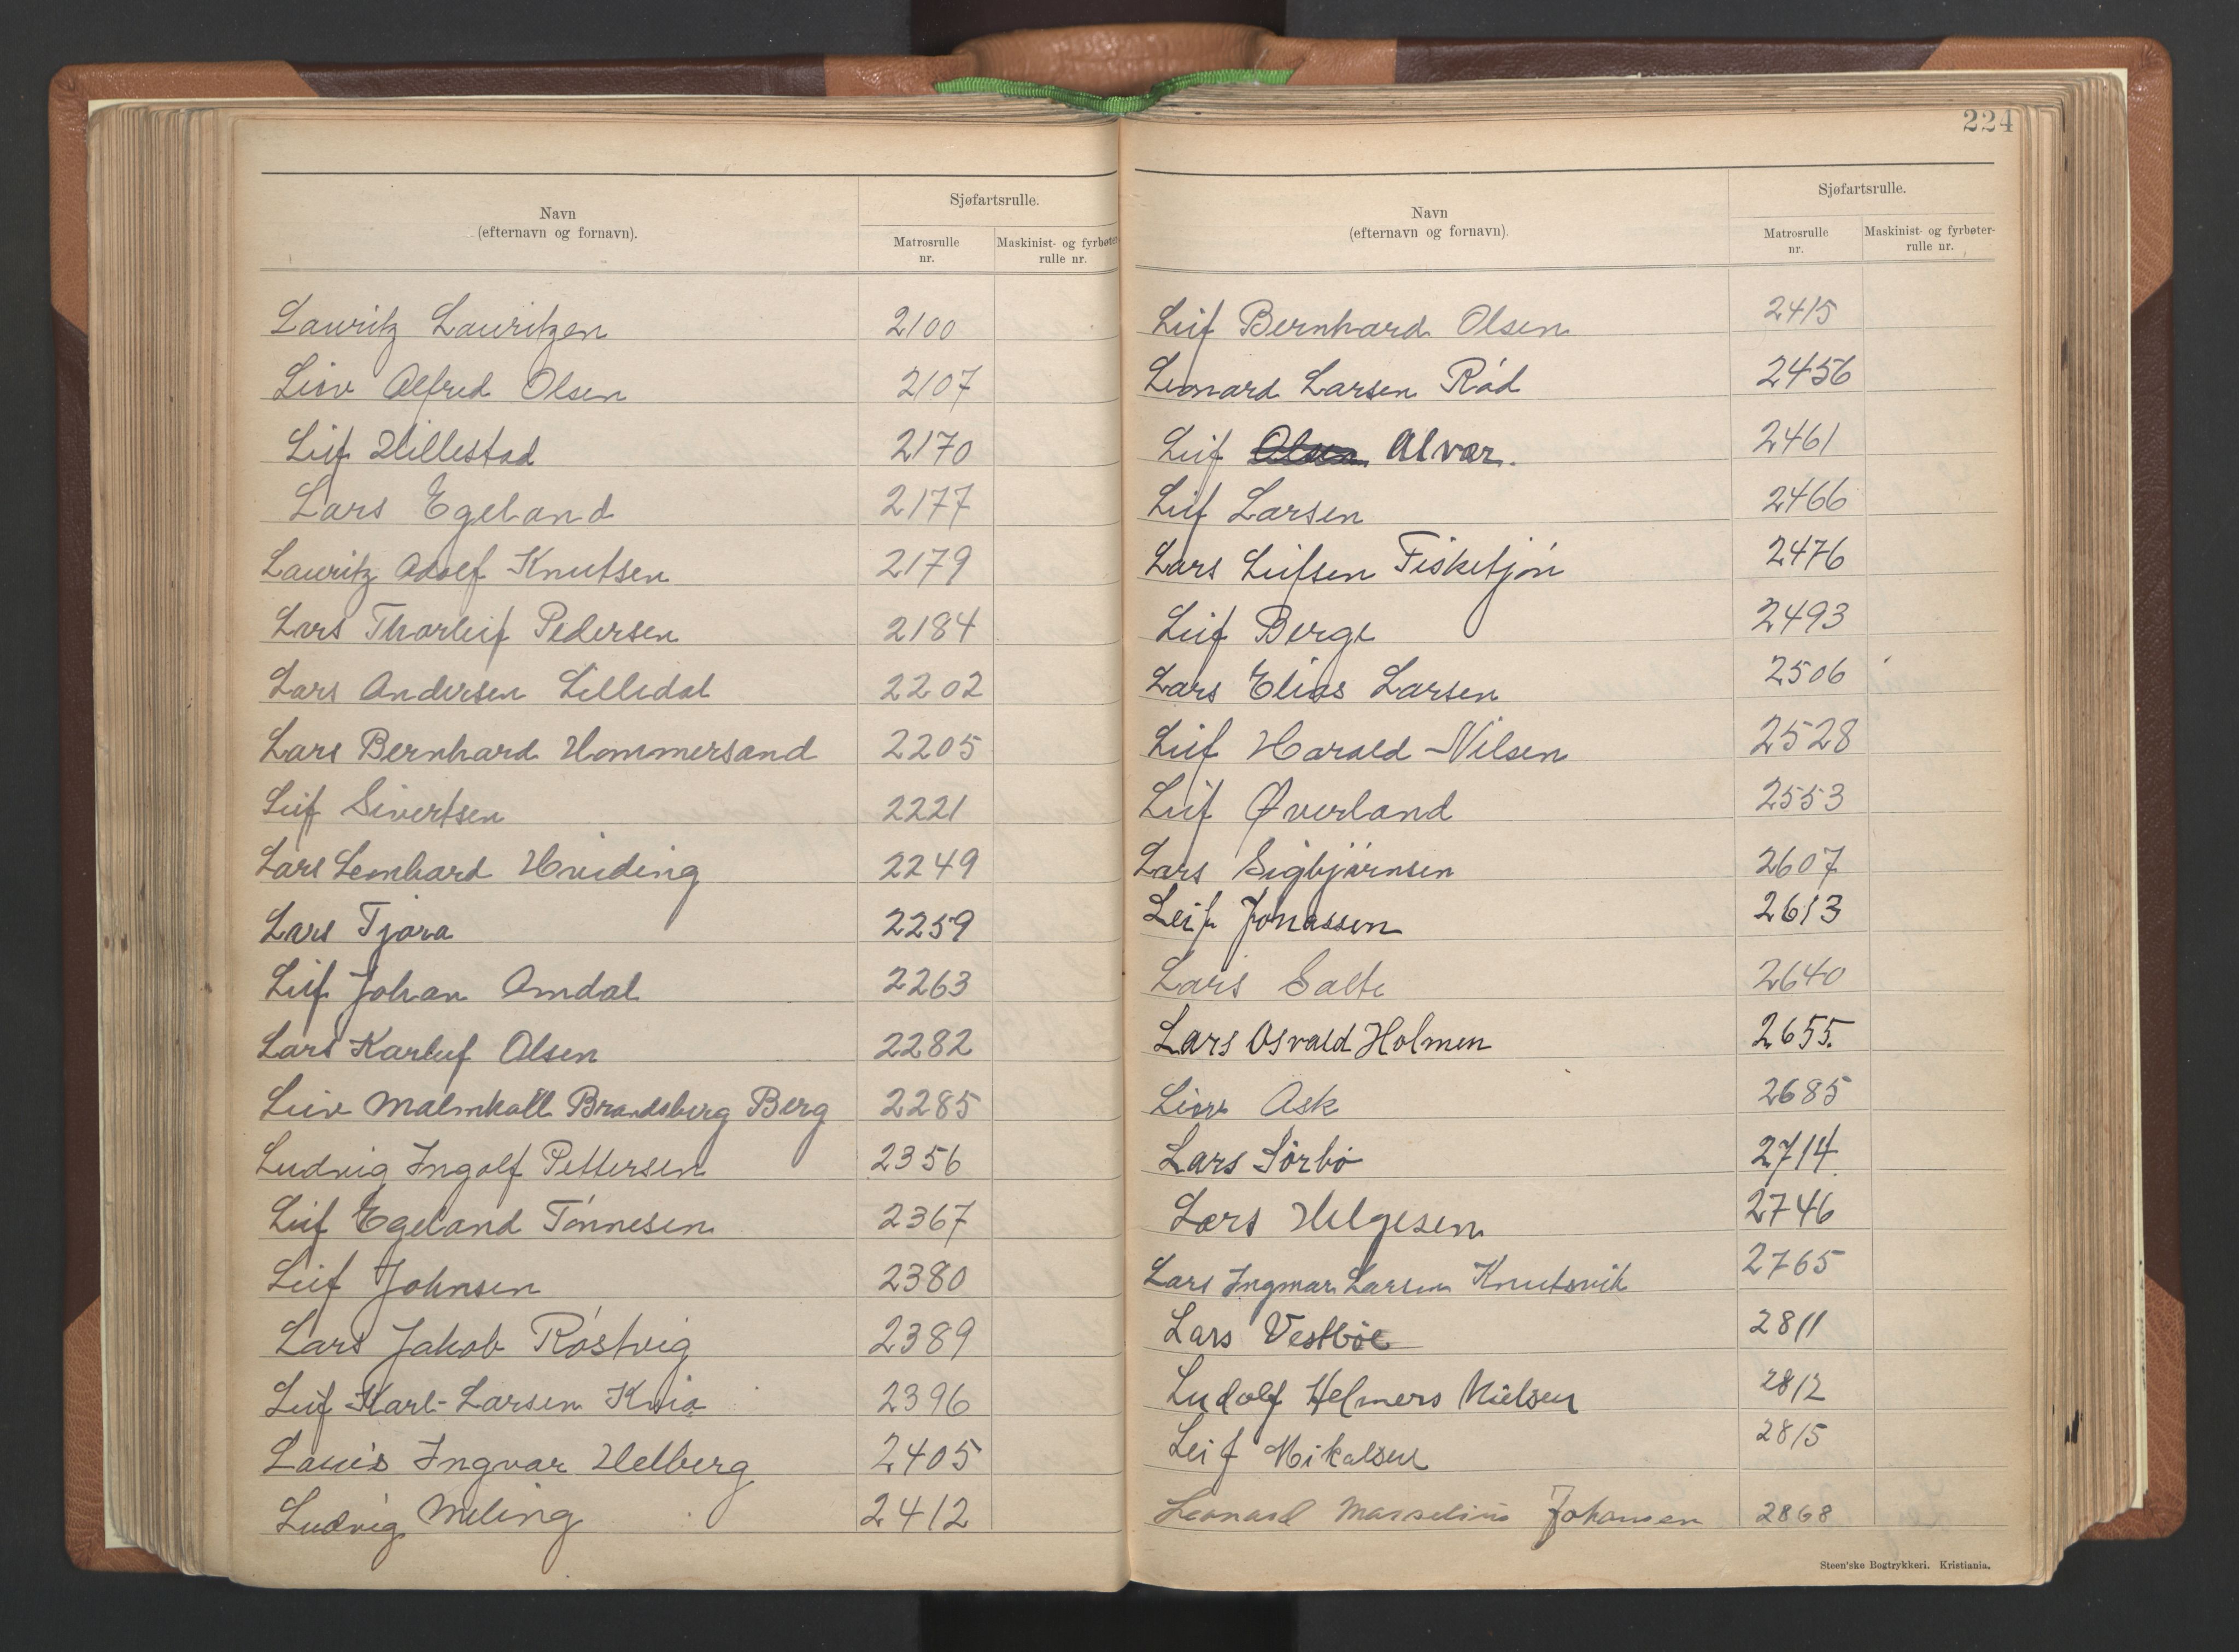 Navn
(efternavn og fornavn).
Sjøfartsrulle.
Matrosrulle
nr.
Maskinist- og fyrbøter-
rulle nr.
Lauritz Lauritzen 2100
Leiv Alfred Olsen 2107
Leif Hillestad 2170
Lars Egeland 2177
Lauritz Adolf Knutsen 2179
Lars Tharleif Pedersen 2184
Lars Andersen Lilledal 2202
Lars Bernhard Hommersand 2205
Leif Sivertsen 2221
Lars Leonhard Hveding 2249
Lars Tjøra 2259
Leif Johan Omdal 2263
Lars Karluf Olsen 2282
Leiv Malmkoll Brandsberg Berg 2285
Ludvig Ingolf Pettersen 2356
Leif Egeland Tönnesen 2367
Leif Johnsen 2380
Lars Jakob Röstvig 2389
Leif Karl-Larsen Kvia 2396
Lauis Ingvar Helberg 2405
Ludvig Meling 2412
224
Navn
(efternavn og fornavn).
Sjøfartsrulle.
Matrosrulle
nr.
Maskinist- og fyrbøter-
rulle nr.
Leif Bernhard Olsen 2415
Leonard Larsen Röd 2456
Leif Alvær. 2461
Leif Larsen 2466
Lars Leifsen Fisketjön 2476
Leif Berge 2493
Lars Elias Larsen 2506
Leif Harald Nilsen 2528
Leif Øverland 2553
Lars Sigbjörnsen 2607
Leif Jonassen 2613
Lars Salte 2640
Lars Osvald Holmen 2655.
Leiv Ask 2685
Lars Sörbö 2714
Lars Helgesen 2746
Lars Ingmar Larsen Knutsvik 2765
Lars Vestbøe 2811
Ludolf Helmers Nielsen 2812
Leif Mikalsen 2815
Leonard Marselius Johansen 2868
Steen'ske Bogtrykkeri. Kristiania.